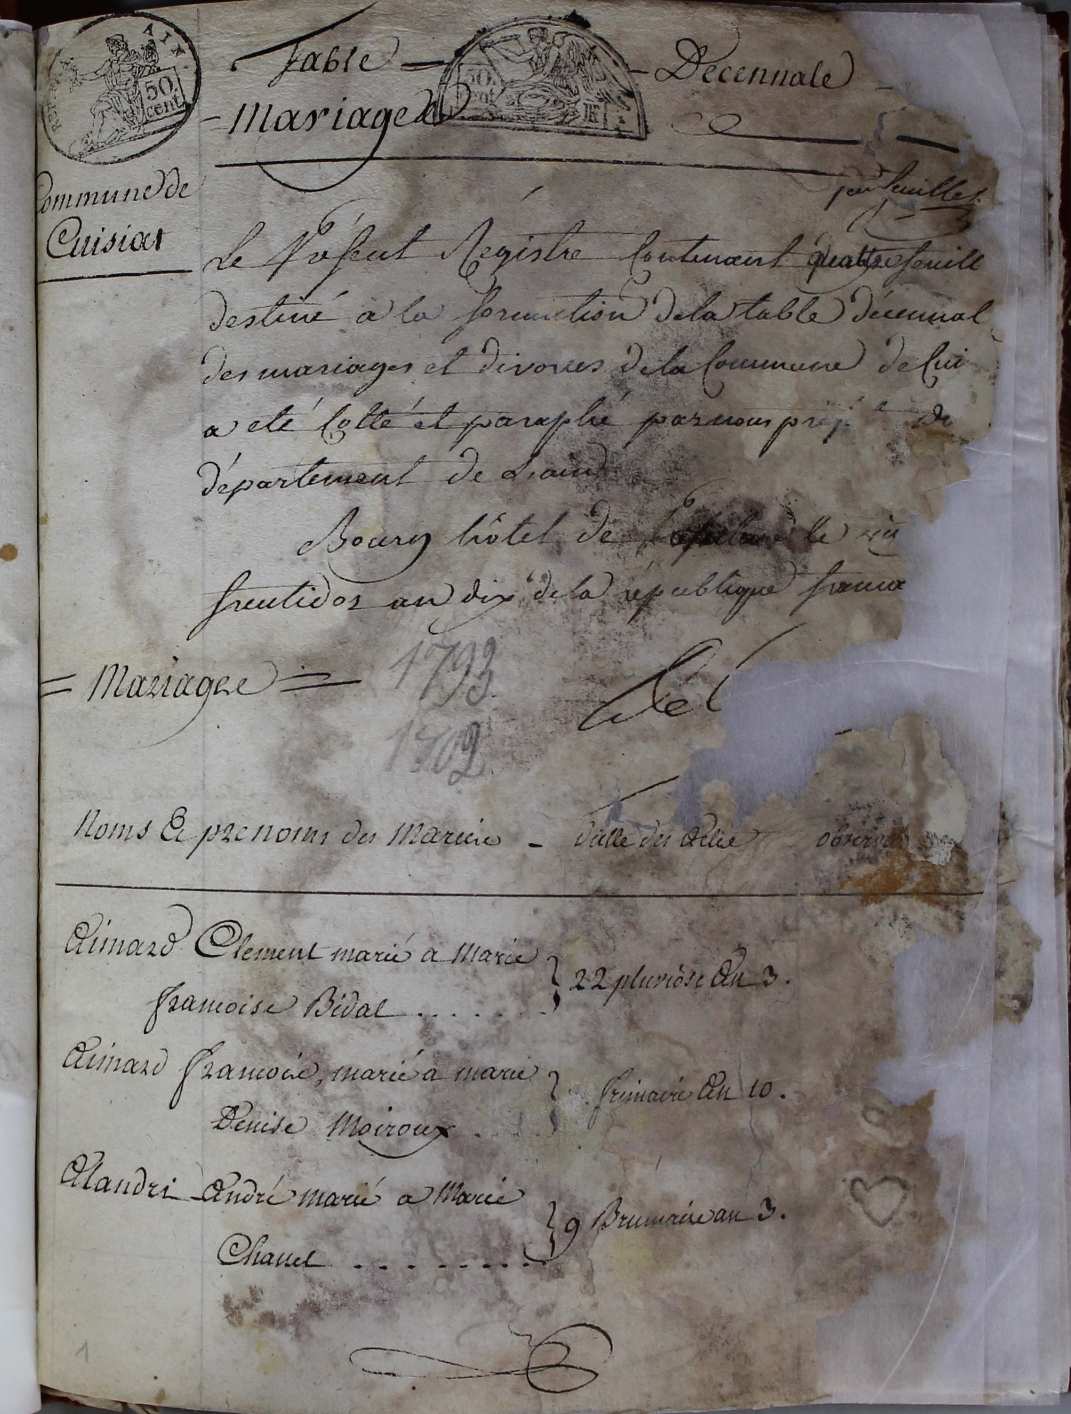 AIN.
50
cent
50.
Table — Décennale
Mariage
Commune de
Cuisiat
feuillet
Le Présent Registre Contenant quatre feuill
destiné a la formation de la table décennal
des mariages et divorces de la Commune de Cui
a eté Cotté et paraphé par nous préf de
département de L'ain
Bourg hôtel de le
fructidor an dix de la république franca
= Mariage =
1793
1802
Noms & prenoms des Mariés - datte des Actes observa
Aimard Clement marié a Marie
françoise Bidal . . . . . . } 22 pluviôse An 3.
Aimard françois, marié a marie
Denise Moiroux . . . } frimaire An 10.
Alandri André marié a Marie
Chanel . . . . . . . . . } 9 Brumaire an 3.
1